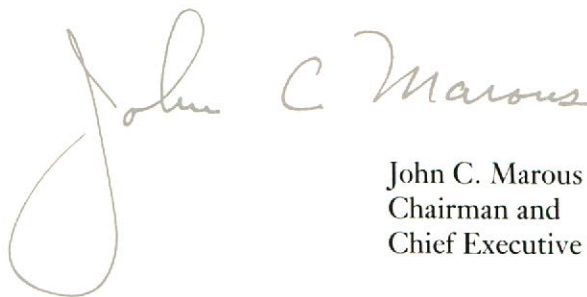 John C Marous
John C. Marous
Chairman and
Chief Executive